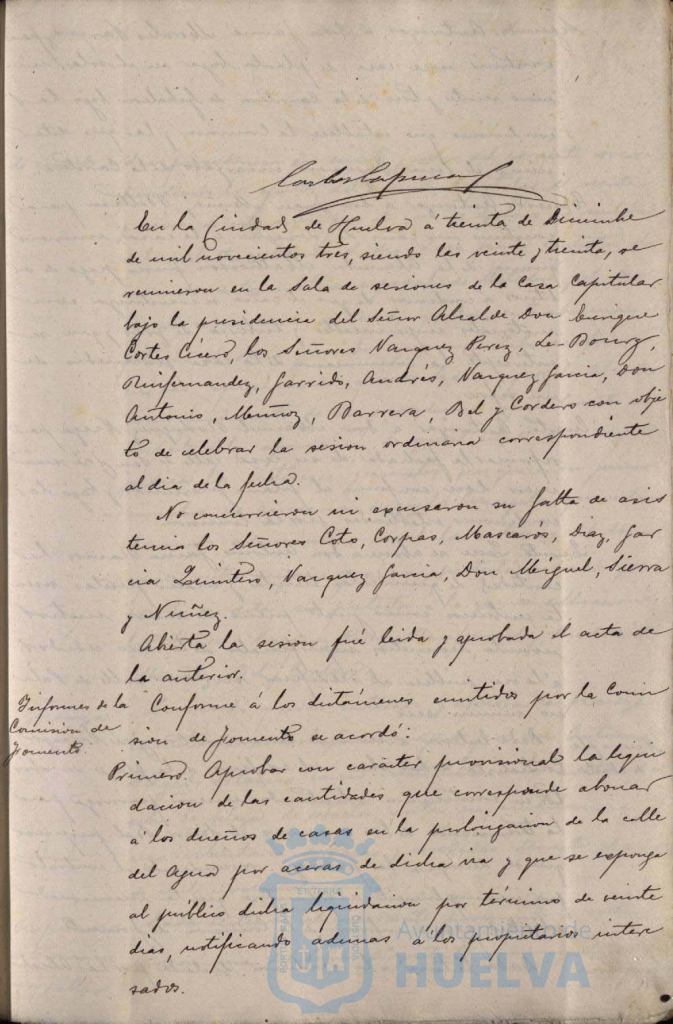 En la Ciudad de Huelva á treinta de Diciembre
de mil novecientos tres, siendo las veinte y treinta, se
reunieron en la Sala de sesiones de la Casa Capitular
bajo la presidencia del Señor Alcalde Don Enrique
Cortes Cícero, los Señores Vazquez Perez, Le-Bourg,
Rinfernandez, Garrido, Andrés, Vazquez Garcia, Don
Antonio, Muñoz, Barrera, Bel y Cordero con obje
to de celebrar la sesion ordinaria correspondiente
al dia de la fecha.
No concurrieron ni excusaron su falta de asis
tencia los Señores Coto, Corpas, Mascarós, Diaz, Gar
cia Quintero, Vazquez Garcia, Don Miguel, Sierra
y Nuñez.
Abierta la sesion fué leida y aprobada el acta de
la anterior.
Informes de la
Comision de
Fomento.
Conforme á los dictámenes emitidos por la Comi
sion de Fomento se acordó:
Primero. Aprobar con carácter provisional la liqui
dacion de las cantidades que corresponde abonar
á los dueños de casas en la prolongacion de la calle
del Agua por aceras de dicha via y que se exponga
al público dicha liquidacion por término de veinte
dias, notificando ademas á los propietarios intere
sados.
Ayuntamiento de
HUELVA